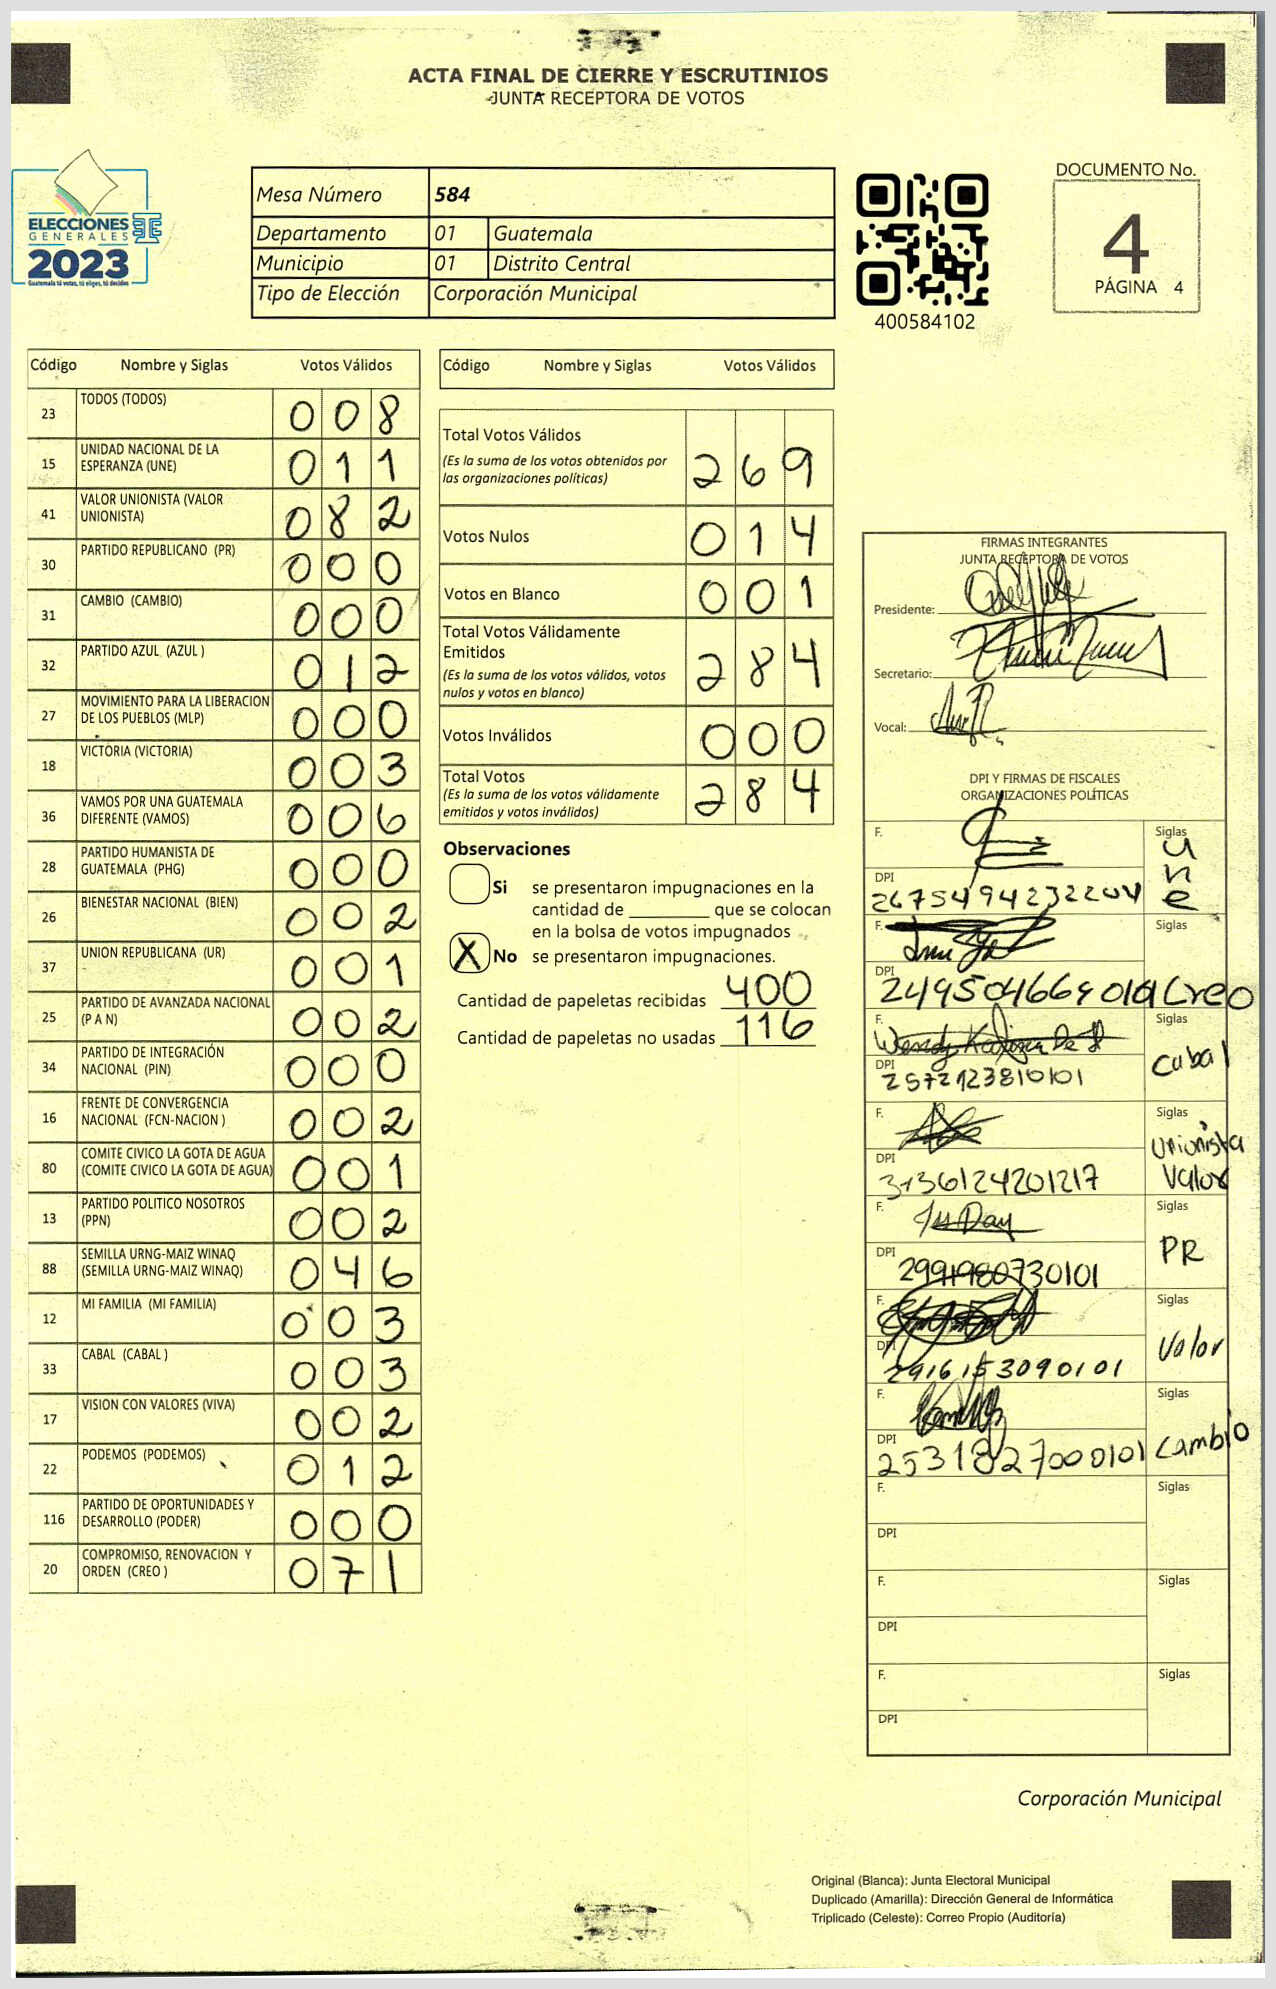 ACTA FINAL DE CIERRE Y ESCRUTINIOS
JUNTA RECEPTORA DE VOTOS
ELECCIONES
GENERALES
2023
Guatemala tú votas, tú eliges, tú decides
Mesa Número 584
Departamento 01 Guatemala
Municipio 01 Distrito Central
Tipo de Elección Corporación Municipal
400584102
DOCUMENTO No.
4
PÁGINA 4
Código Nombre y Siglas Votos Válidos
23 TODOS (TODOS) 008
15 UNIDAD NACIONAL DE LA
ESPERANZA (UNE) 011
41 VALOR UNIONISTA (VALOR
UNIONISTA) 082
30 PARTIDO REPUBLICANO (PR) 000
31 CAMBIO (CAMBIO) 000
32 PARTIDO AZUL (AZUL ) 012
27 MOVIMIENTO PARA LA LIBERACION
DE LOS PUEBLOS (MLP) 000
18 VICTORIA (VICTORIA) 003
36 VAMOS POR UNA GUATEMALA
DIFERENTE (VAMOS) 006
28 PARTIDO HUMANISTA DE
GUATEMALA (PHG) 000
26 BIENESTAR NACIONAL (BIEN) 002
37 UNION REPUBLICANA (UR) 001
25 PARTIDO DE AVANZADA NACIONAL
(P A N) 002
34 PARTIDO DE INTEGRACIÓN
NACIONAL (PIN) 000
16 FRENTE DE CONVERGENCIA
NACIONAL (FCN-NACION ) 002
80 COMITE CIVICO LA GOTA DE AGUA
(COMITE CIVICO LA GOTA DE AGUA) 001
13 PARTIDO POLITICO NOSOTROS
(PPN) 002
88 SEMILLA URNG-MAIZ WINAQ
(SEMILLA URNG-MAIZ WINAQ) 046
12 MI FAMILIA (MI FAMILIA) 003
33 CABAL (CABAL ) 003
17 VISION CON VALORES (VIVA) 002
22 PODEMOS (PODEMOS) 012
116 PARTIDO DE OPORTUNIDADES Y
DESARROLLO (PODER) 000
20 COMPROMISO, RENOVACION Y
ORDEN (CREO ) 071
Código Nombre y Siglas Votos Válidos
Total Votos Válidos
(Es la suma de los votos obtenidos por
las organizaciones políticas) 269
Votos Nulos 014
Votos en Blanco 001
Total Votos Válidamente
Emitidos
(Es la suma de los votos válidos, votos
nulos y votos en blanco) 284
Votos Inválidos 000
Total Votos
(Es la suma de los votos válidamente
emitidos y votos inválidos) 284
Observaciones
Si se presentaron impugnaciones en la
cantidad de ________ que se colocan
en la bolsa de votos impugnados
X No se presentaron impugnaciones.
Cantidad de papeletas recibidas 400
Cantidad de papeletas no usadas 116
FIRMAS INTEGRANTES
JUNTA RECEPTORA DE VOTOS
Presidente:
Secretario:
Vocal:
DPI Y FIRMAS DE FISCALES
ORGANIZACIONES POLÍTICAS
F. Siglas
une
DPI
2675494232204
F. Siglas
DPI
Creo
F. Siglas
Wendy
Cabal
DPI
2572123810101
F. Siglas
Unionista
Valor
DPI
F. Siglas
PR
DPI
2991980730101
F. Siglas
Valor
DPI
2916153090101
F. Siglas
Cambio
DPI
2531827000101
F. Siglas
DPI
F. Siglas
DPI
F. Siglas
DPI
Corporación Municipal
Original (Blanca): Junta Electoral Municipal
Duplicado (Amarilla): Dirección General de Informática
Triplicado (Celeste): Correo Propio (Auditoría)